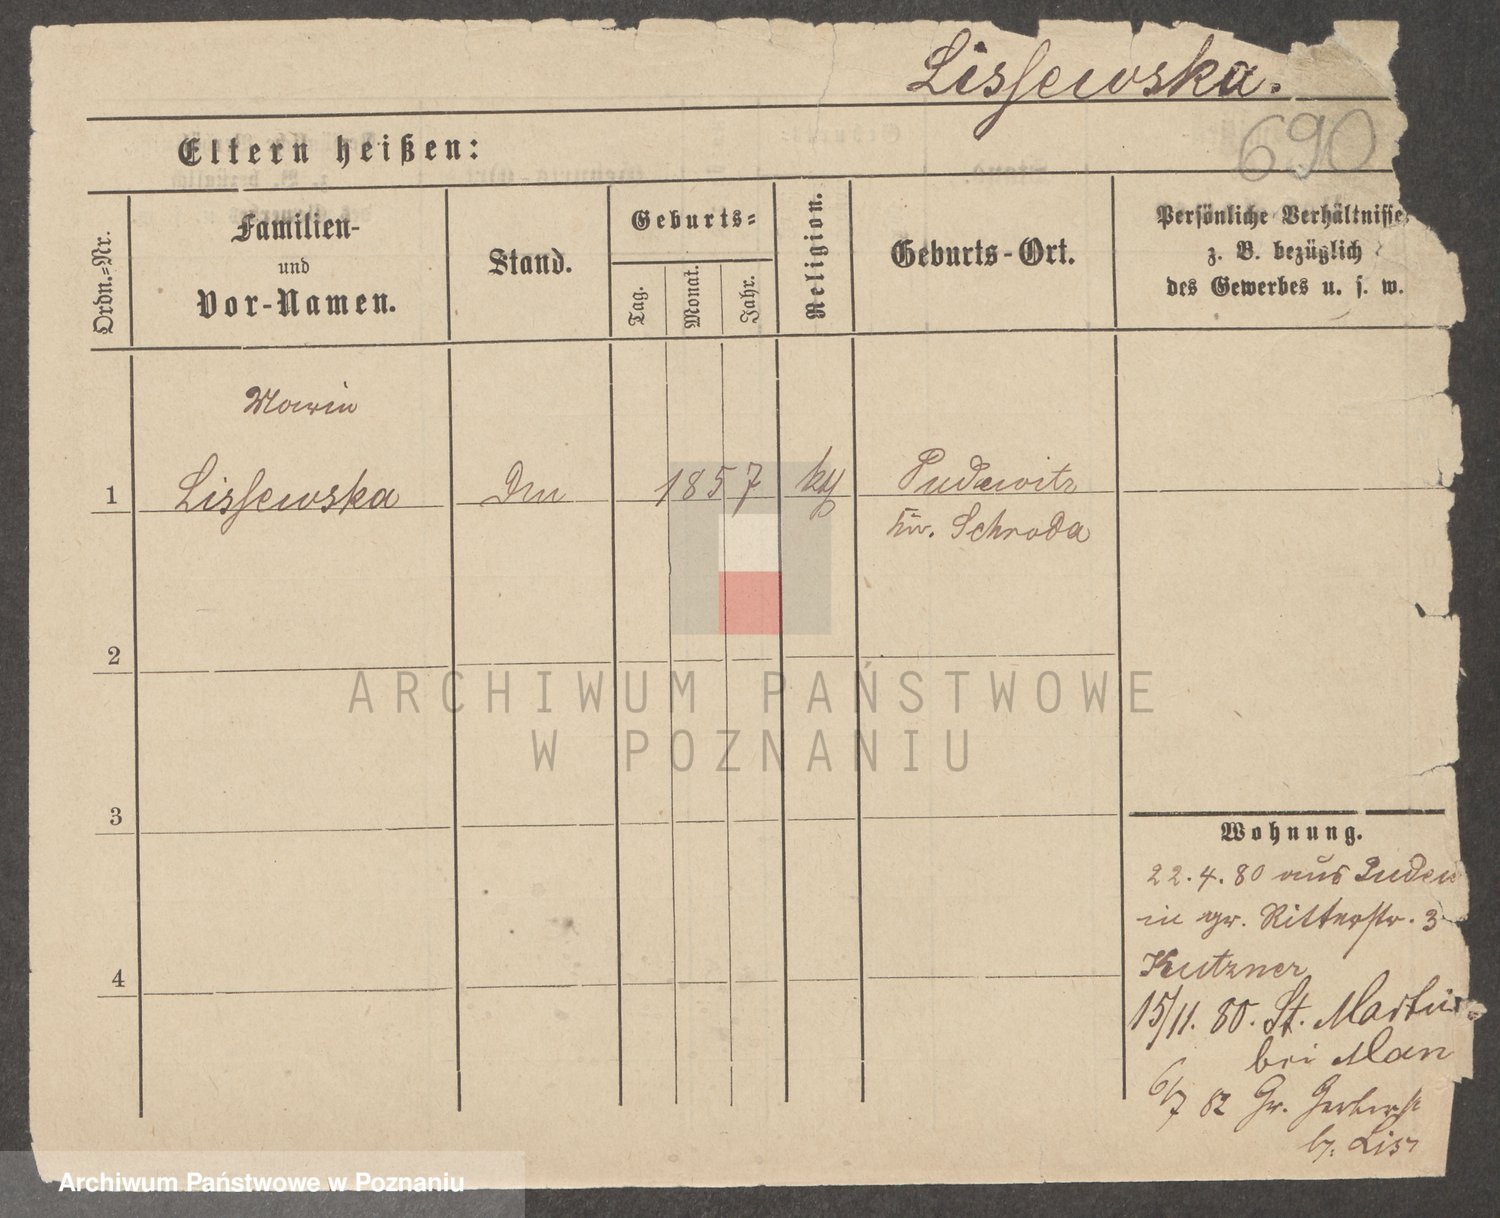 Lissewska.
690
Eltern heißen:
Ordn.-Nr.
Familien-
und
Vor-Namen.
Stand.
Geburts-
Tag.
Monat.
Jahr.
Religion.
Geburts-Ort.
Persönliche Verhältnisse,
z. B. bezüglich
des Gewerbes u. s. w.
Marie
1 Lissewska 1857 Pudewitz
Kr. Schroda
2
ARCHIWUM PAŃSTWOWE
W POZNANIU
3
Wohnung.
22.4.80 aus Pudew
in gr. Ritterstr. 3
Kutzner
4
15/11. 80. St. Martin
bei Man
6/7 82 Gr. Gerberst
b. Lis
Archiwum Państwowe w Poznaniu